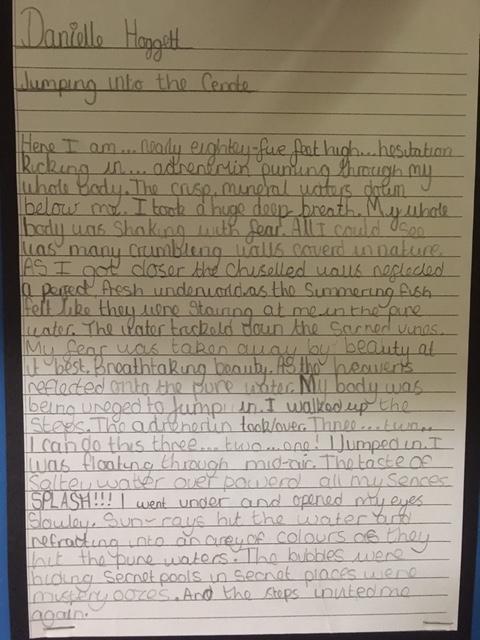 Danielle Hoggett
Jumping into the Cenote
Here I am... nearly eightey-five feet high... hesitation
kicking in... adrenerlin pumting through my
whole body. The crisp, mineral waters down
below me. I took a huge deep breath. My whole
body was shaking with fear. All I could see
was many crumbling walls coverd in nature.
AS I got closer the chuselled walls neglected
a perfect, fresh underworld.as the Summering fish
felt like they were staring at me in the pure
water. The water tackeld down the Sacred vines.
My fear was taken away by beauty at
it best. Breathtaking beauty. As the heavens
reflected onto the pure water. My body was
being ureged to Jump in. I walked up the
steps. The adrenerlin took/over. Three... two..
I can do this three... two... one! I Jumped in. I
was floating through mid-air. The taste of
Saltey water over powerd all my sences
SPLASH!!! I went under and opened my eyes
Slowley. Sun-rays hit the water and
refracting into an arey of colours as they
hit the pure waters. The bubbles were
hiding secret pools in secret places were
mistery oozes. And the steps invited me
again.